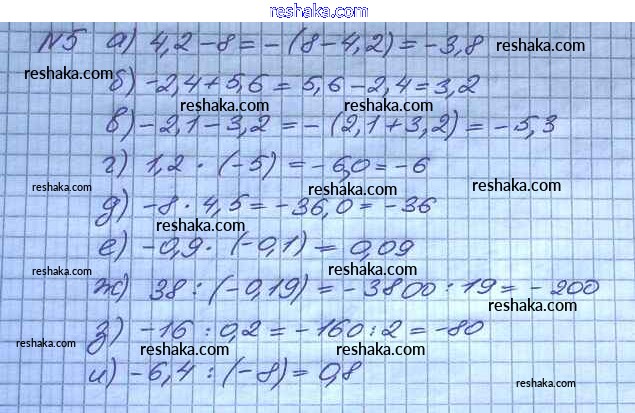 reshaka.com
№5 а) 4,2-8=-(8-4,2)=-3,8
reshaka.com reshaka.com reshaka.com
б) -2,4+5,6=5,6-2,4=3,2
reshaka.com reshaka.com
в) -2,1-3,2=-(2,1+3,2)=-5,3
г) 1,2·(-5)=-6,0=-6
reshaka.com reshaka.com reshaka.com
д) -8·4,5=-36,0=-36
reshaka.com
е) -0,9·(-0,1)=0,09
reshaka.com reshaka.com
ж) 38:(-0,19)=-3800:19=-200
reshaka.com
з) -16:0,2=-160:2=-80
reshaka.com reshaka.com reshaka.com
и) -6,4:(-8)=0,8
reshaka.com